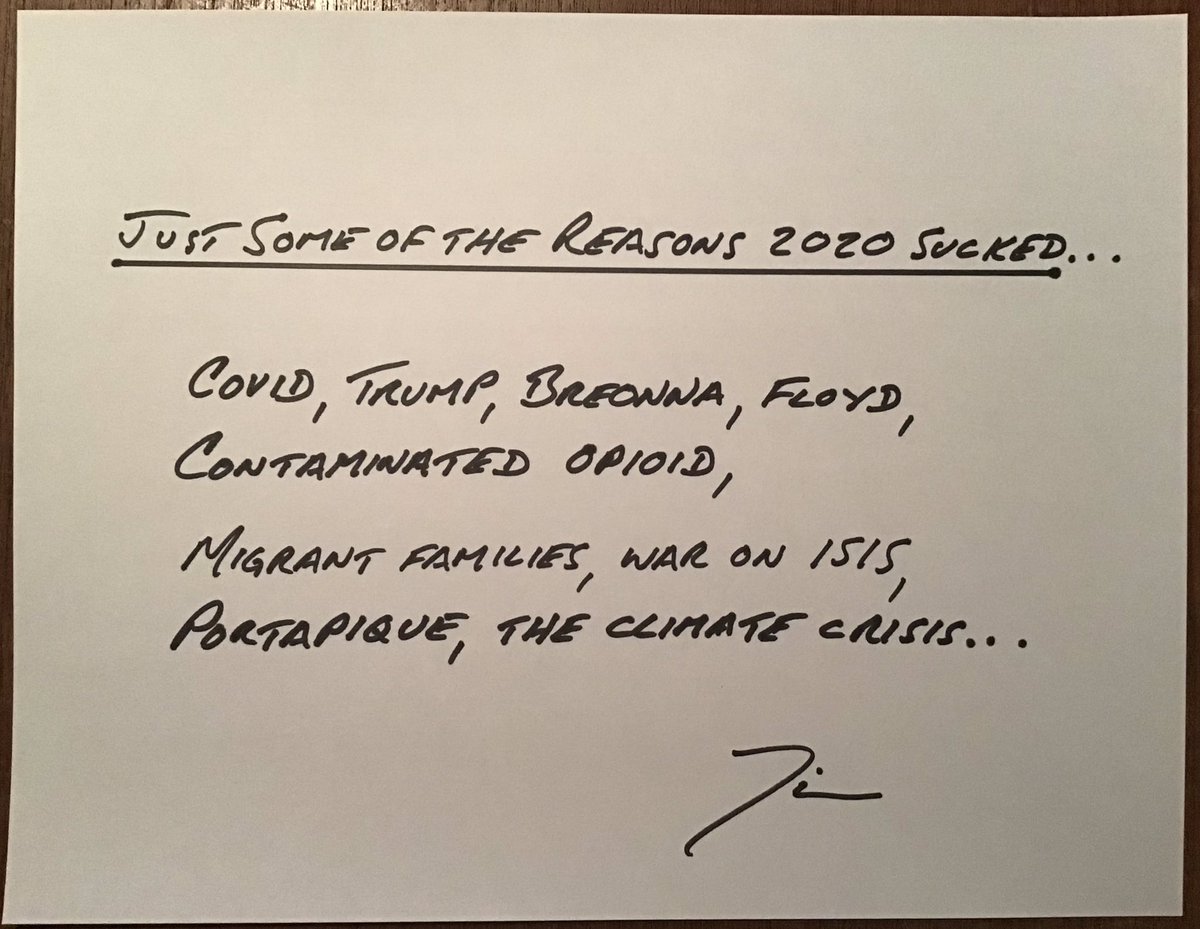 Just Some of the Reasons 2020 Sucked...
Covid, Trump, Breonna, Floyd,
Contaminated opioid,
Migrant families, war on ISIS,
Portapique, the climate crisis...